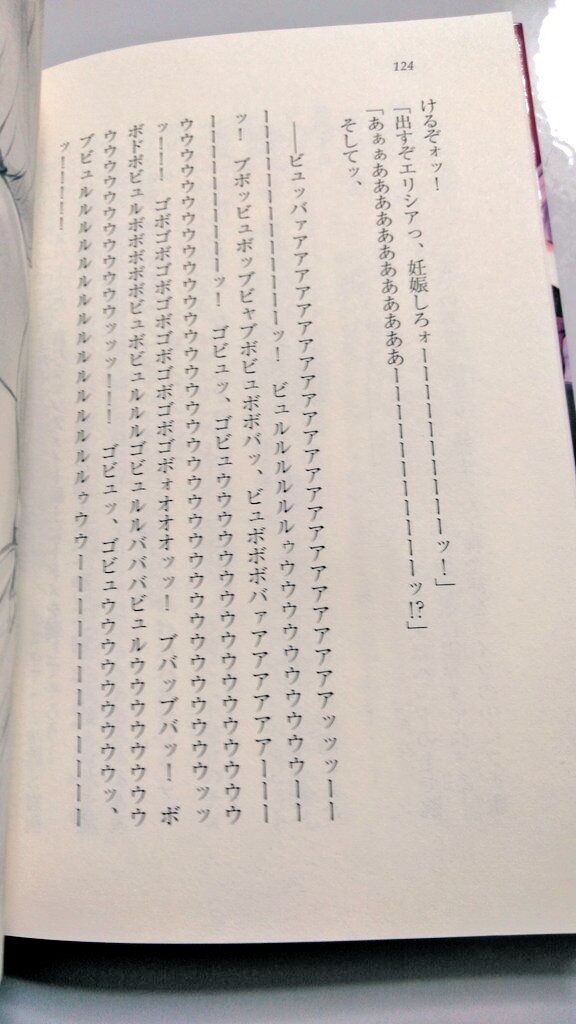 124
けるぞォッ!
「出すぞエリシアっ、妊娠しろォーーーーーーーーーーーッ!」
「あぁぁあああああああああああーーーーーーーーーーーッ!?」
そしてッ、
――ビュッバァアアアアアアアアアアアアアアアアアアアアアアアアアアアッッッーー
ーーーーーーーーーーーーーッ! ビュルルルルルルルゥウウウウウウウウウウウーー
ッ! ブボッビュボッブビャブボビュボボバッ、ビュボボボバァアアアアアアアーーー
ーーーーーーーーーッ! ゴビュッ、ゴビュウウウウウウウウウウウウウウウウウウウ
ウウウウウウウウウウウウウウウウウウウウウウウウウウウウウウウウウウウウウッッ
ッ!!! ゴボゴボゴボゴボゴボゴボゴボゴボォオオオッッ! ブバッブバッ! ボ
ボドボビュルボボボボボビュボビュルルルゴビュルルバババビュルウウウウウウウウウ
ウウウウウウウウウウウウッッッ!!! ゴビュッ、ゴビュウウウウウウウウウウウッ、
ブビュルルルルルルルルルルルルルルルルルルゥウウーーーーーーーーーーーーーーー
ッ!!!!!